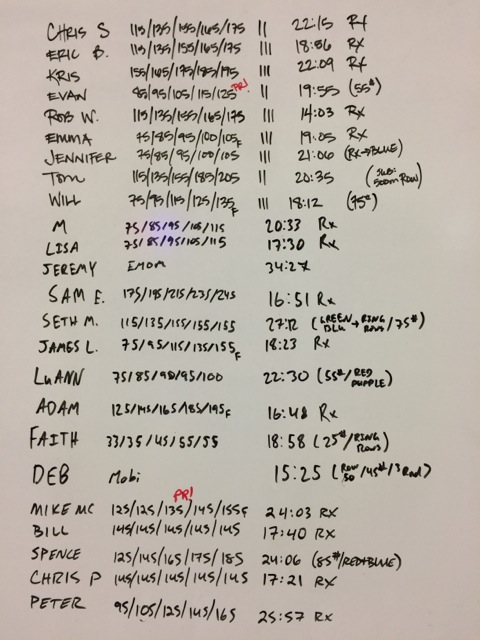 CHRIS S 115/135/155/165/175 || 22:15 Rx
ERIC B. 115/135/155/165/175 ||| 18:56 Rx
KRIS 155/165/175/185/195 ||| 22:09 Rx
EVAN 85/95/105/115/125 PR! || 19:55 (55#)
ROB W. 115/135/155/165/175 ||| 14:03 Rx
EMMA 75/85/95/100/105F ||| 19:05 Rx
JENNIFER 75/85/95/100/105 ||| 21:06 (Rx→BLUE)
TOM 115/135/155/185/205 || 20:35 (SUB: 500m ROW)
WILL 75/95/115/125/135F ||| 18:12 (75#)
M 75/85/95/105/115 20:33 Rx
LISA 75/85/95/105/115 17:30 Rx
JEREMY EMOM 34:27
SAM E. 175/195/215/235/245 16:51 Rx
SETH M. 115/135/155/155/155 27:12 (GREEN BLU → RING ROWS/75#)
JAMES L. 75/95/115/135/155F 18:23 Rx
LuANN 75/85/90/95/100 22:30 (55#/RED PURPLE)
ADAM 125/145/165/185/195F 16:48 Rx
FAITH 33/35/45/55/55 18:58 (25#/RING ROWS)
DEB Mobi 15:25 (ROW 50/45#/3 Rnd)
MIKE MC 125/125/135/145/155F PR! 24:03 RX
BILL 145/145/145/145/145 17:40 RX
SPENCE 125/145/165/175/185 24:06 (85#/RED+BLUE)
CHRIS P 145/145/145/145/145 17:21 RX
PETER 95/105/125/145/165 25:57 RX